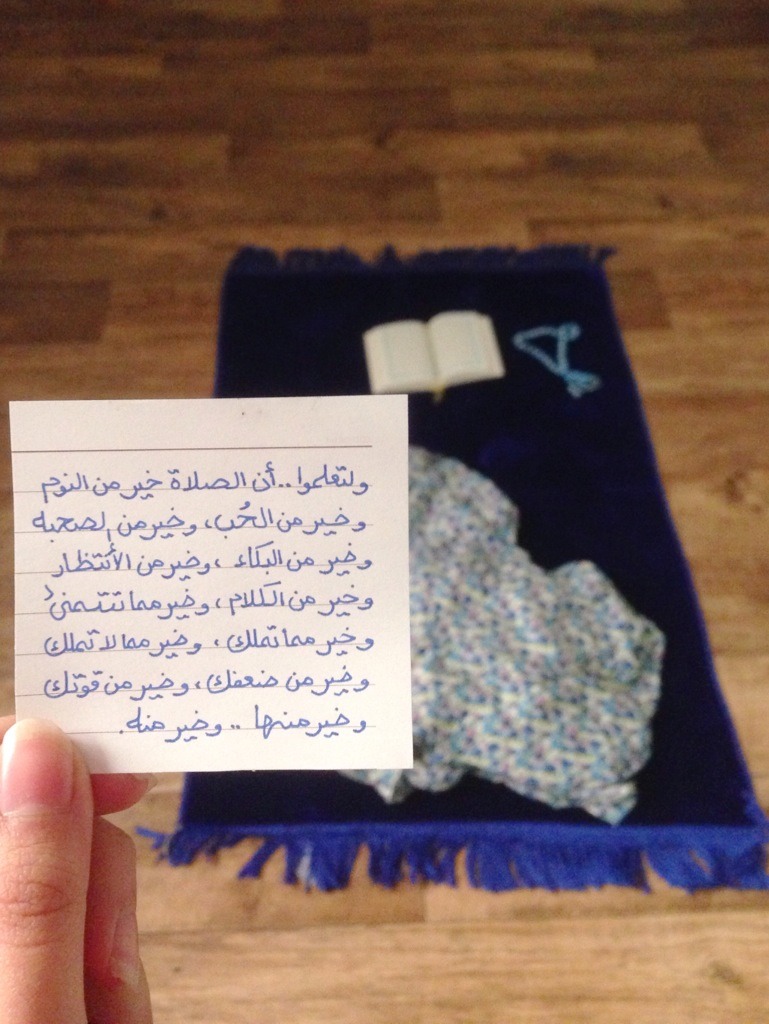 ولتعلموا.. أن الصلاة خير من النوم
وخير من الحُب، وخير من الصحبه
وخير من البكاء، وخير من الأنتظار
وخير من الكلام، وخير مما تتمنى
وخير مما تملك، وخير مما لا تملك
وخير من ضعفك، وخير من قوتك
وخير منها .. وخير منه.